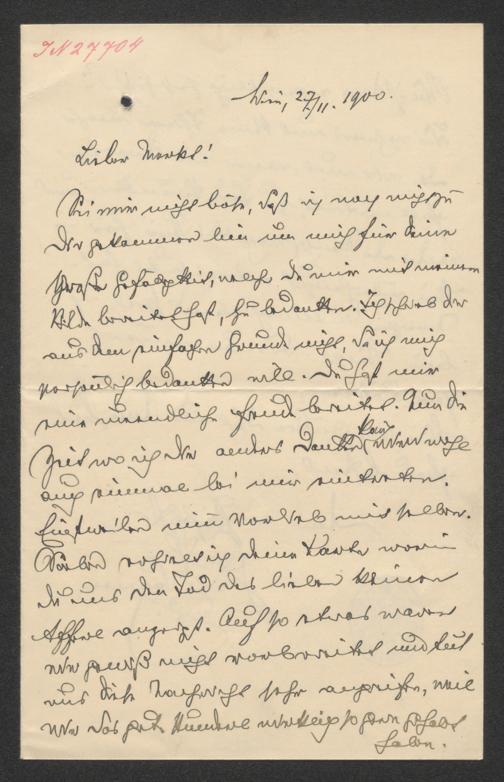 IN 27704
Wien, 27/11. 1900.
Lieber Merkl!
Sei mir nicht böse, daß ich noch nicht zu
Dir gekommen bin um mich für deine
große Gefälligkeit, welche du mir mit meinem
Bilde bereitet hast, zu bedanken. Ich schrieb dir
aus dem einfachen Grunde nicht, da ich mich
persönlich bedanken will. Du hast mir
eine unendliche Freude bereitet. Nun die
Zeit wo ich dir anders danken kann wird wohl
auch einmal bei mir eintreten.
Einstweilen nimm Vorlieb mit selben.
Soeben erhielt ich deine Karte worin
du uns den Tod des lieben kleinen
Afferl anzeigt. Auf so etwas waren
wir gewiß nicht vorbereitet und hat
uns diese Nachricht sehr angegriffen, weil
wir das gute Hunderl wirklich so gern gehabt
haben.